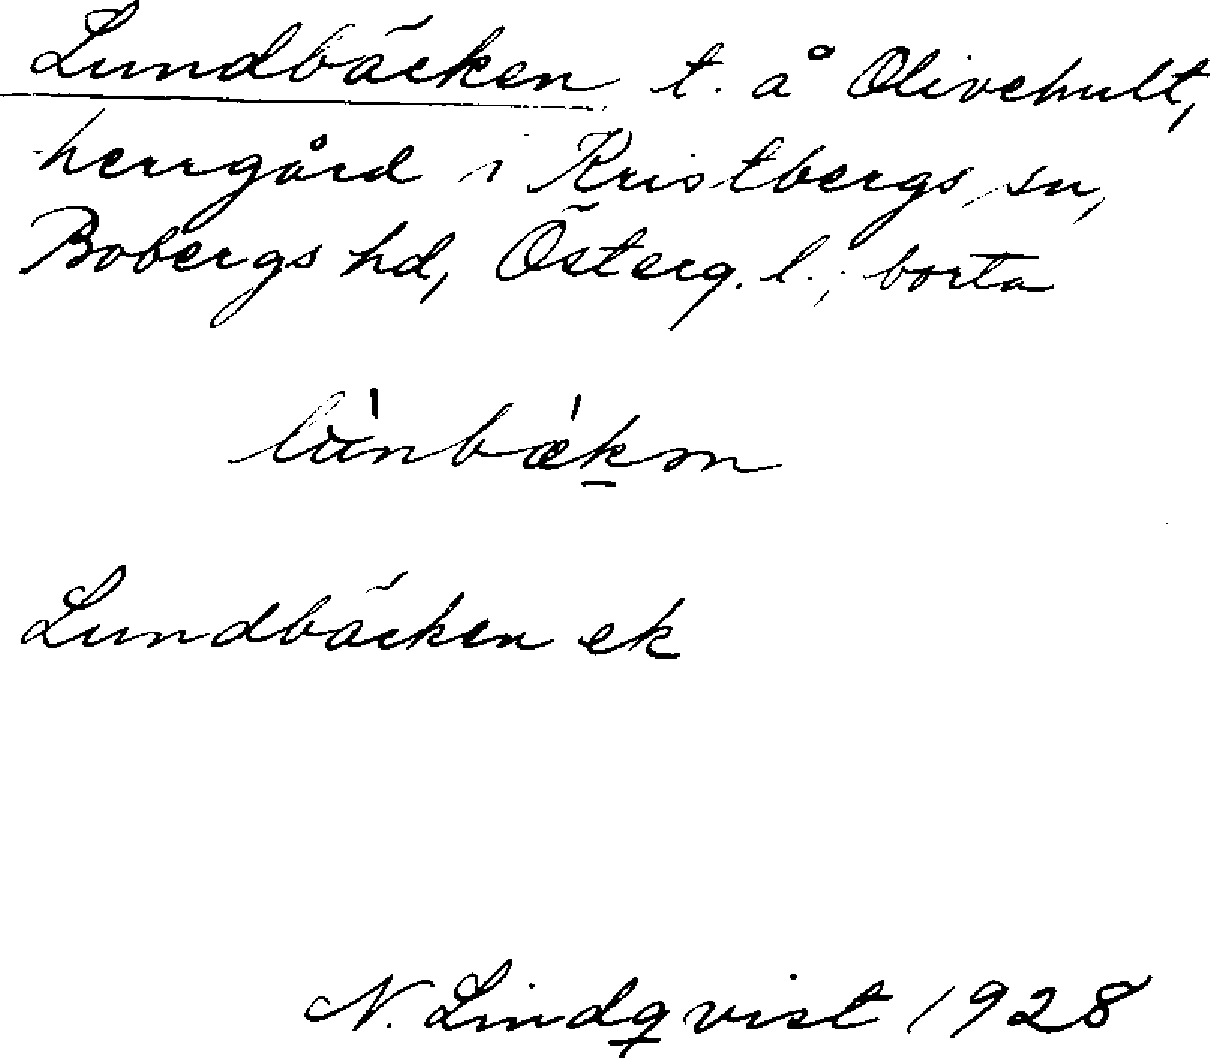 Lundbäcken t. å Olivehult,
herrgård i Kristbergs sn,
Bobergs hd, Österg. l.; borta
Lundbäcken ek
N. Lindqvist 1928